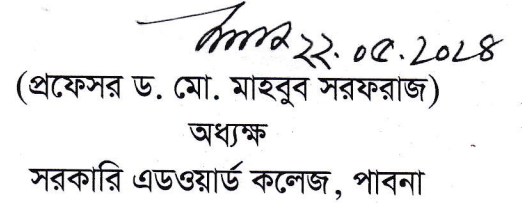 ২২.০৫.২০২৪
(প্রফেসর ড. মো. মাহবুব সরফরাজ)
অধ্যক্ষ
সরকারি এডওয়ার্ড কলেজ, পাবনা